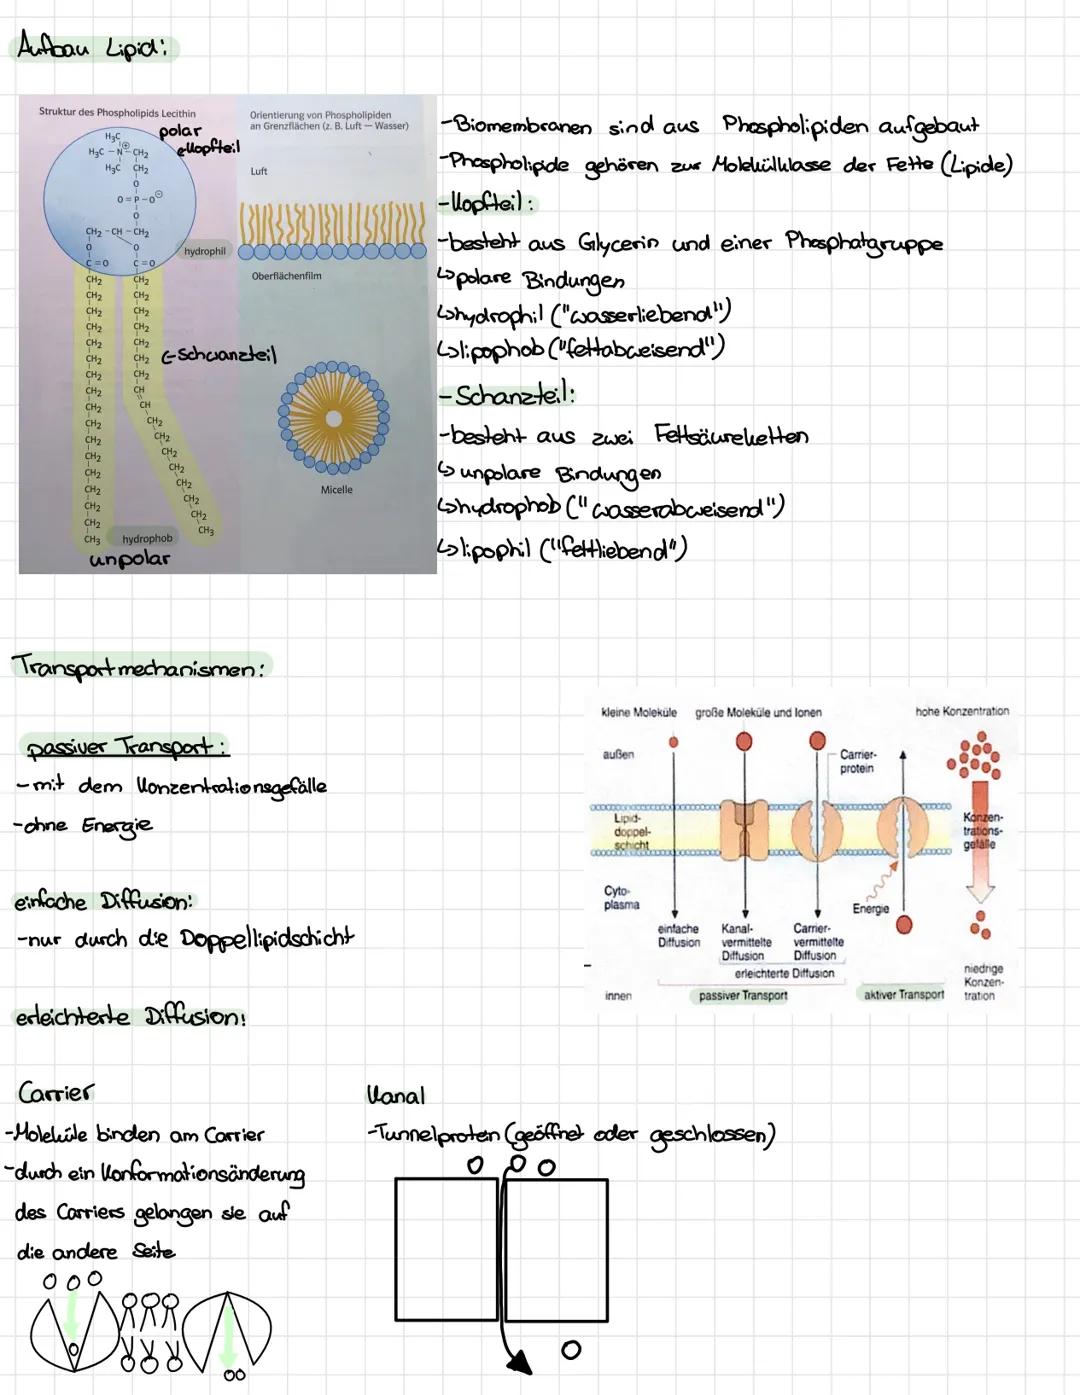 Aufbau Lipid:
Struktur des Phospholipids Lecithin
polar
Kopfteil
H₃C
H₃C – N⊕ – CH₂
H₃C CH₂
O
O = P – O⊖
O
CH₂ – CH – CH₂
O O
C = O C = O
CH₂ CH₂
CH₂ CH₂
CH₂ CH₂
CH₂ CH₂
CH₂ CH₂
CH₂ CH₂
CH₂ CH₂
CH₂ CH
CH₂ CH
CH₂ CH₂
CH₂ CH₂
CH₂ CH₂
CH₂ CH₂
CH₂ CH₂
CH₂ CH₂
CH₂ CH₂
CH₃ CH₃
hydrophil
←Schwanzteil
hydrophob
unpolar
Orientierung von Phospholipiden
an Grenzflächen (z. B. Luft — Wasser)
Luft
Oberflächenfilm
Micelle
-Biomembranen sind aus Phospholipiden aufgebaut
-Phospholipide gehören zur Molekülklasse der Fette (Lipide)
-Kopfteil:
-besteht aus Glycerin und einer Phosphatgruppe
↳polare Bindungen
↳hydrophil ("wasserliebend")
↳lipophob ("fettabweisend")
-Schanzteil:
-besteht aus zwei Fettsäureketten
↳unpolare Bindungen
↳hydrophob ("wasserabweisend")
↳lipophil ("fettliebend")
Transportmechanismen:
passiver Transport:
-mit dem Konzentrationsgefälle
-ohne Energie
einfache Diffusion:
-nur durch die Doppellipidschicht
erleichterte Diffusion:
kleine Moleküle
große Moleküle und Ionen
hohe Konzentration
außen
Carrier-
protein
Lipid-
doppel-
schicht
Konzen-
trations-
gefälle
Cyto-
plasma
Energie
einfache
Diffusion
Kanal-
vermittelte
Diffusion
Carrier-
vermittelte
Diffusion
erleichterte Diffusion
niedrige
Konzen-
tration
innen
passiver Transport
aktiver Transport
Carrier
-Moleküle binden am Carrier
-durch ein Konformationsänderung
des Carriers gelangen sie auf
die andere Seite
Kanal
-Tunnelprotein (geöffnet oder geschlossen)